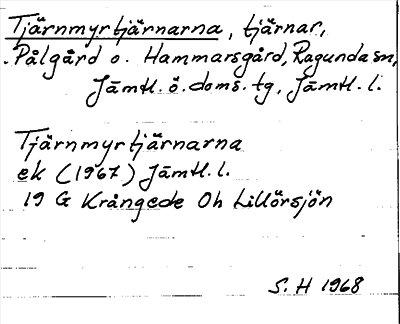 Tjärnmyrtjärnarna, tjärnar,
Pålgård o. Hammarsgård, Ragunda sn,
Jämtl. ö. doms. tg, Jämtl. l.
Tjärnmyrtjärnarna
ek (1967) Jämtl. l.
19 G Krångede Oh Lillörsjön
S. H 1968